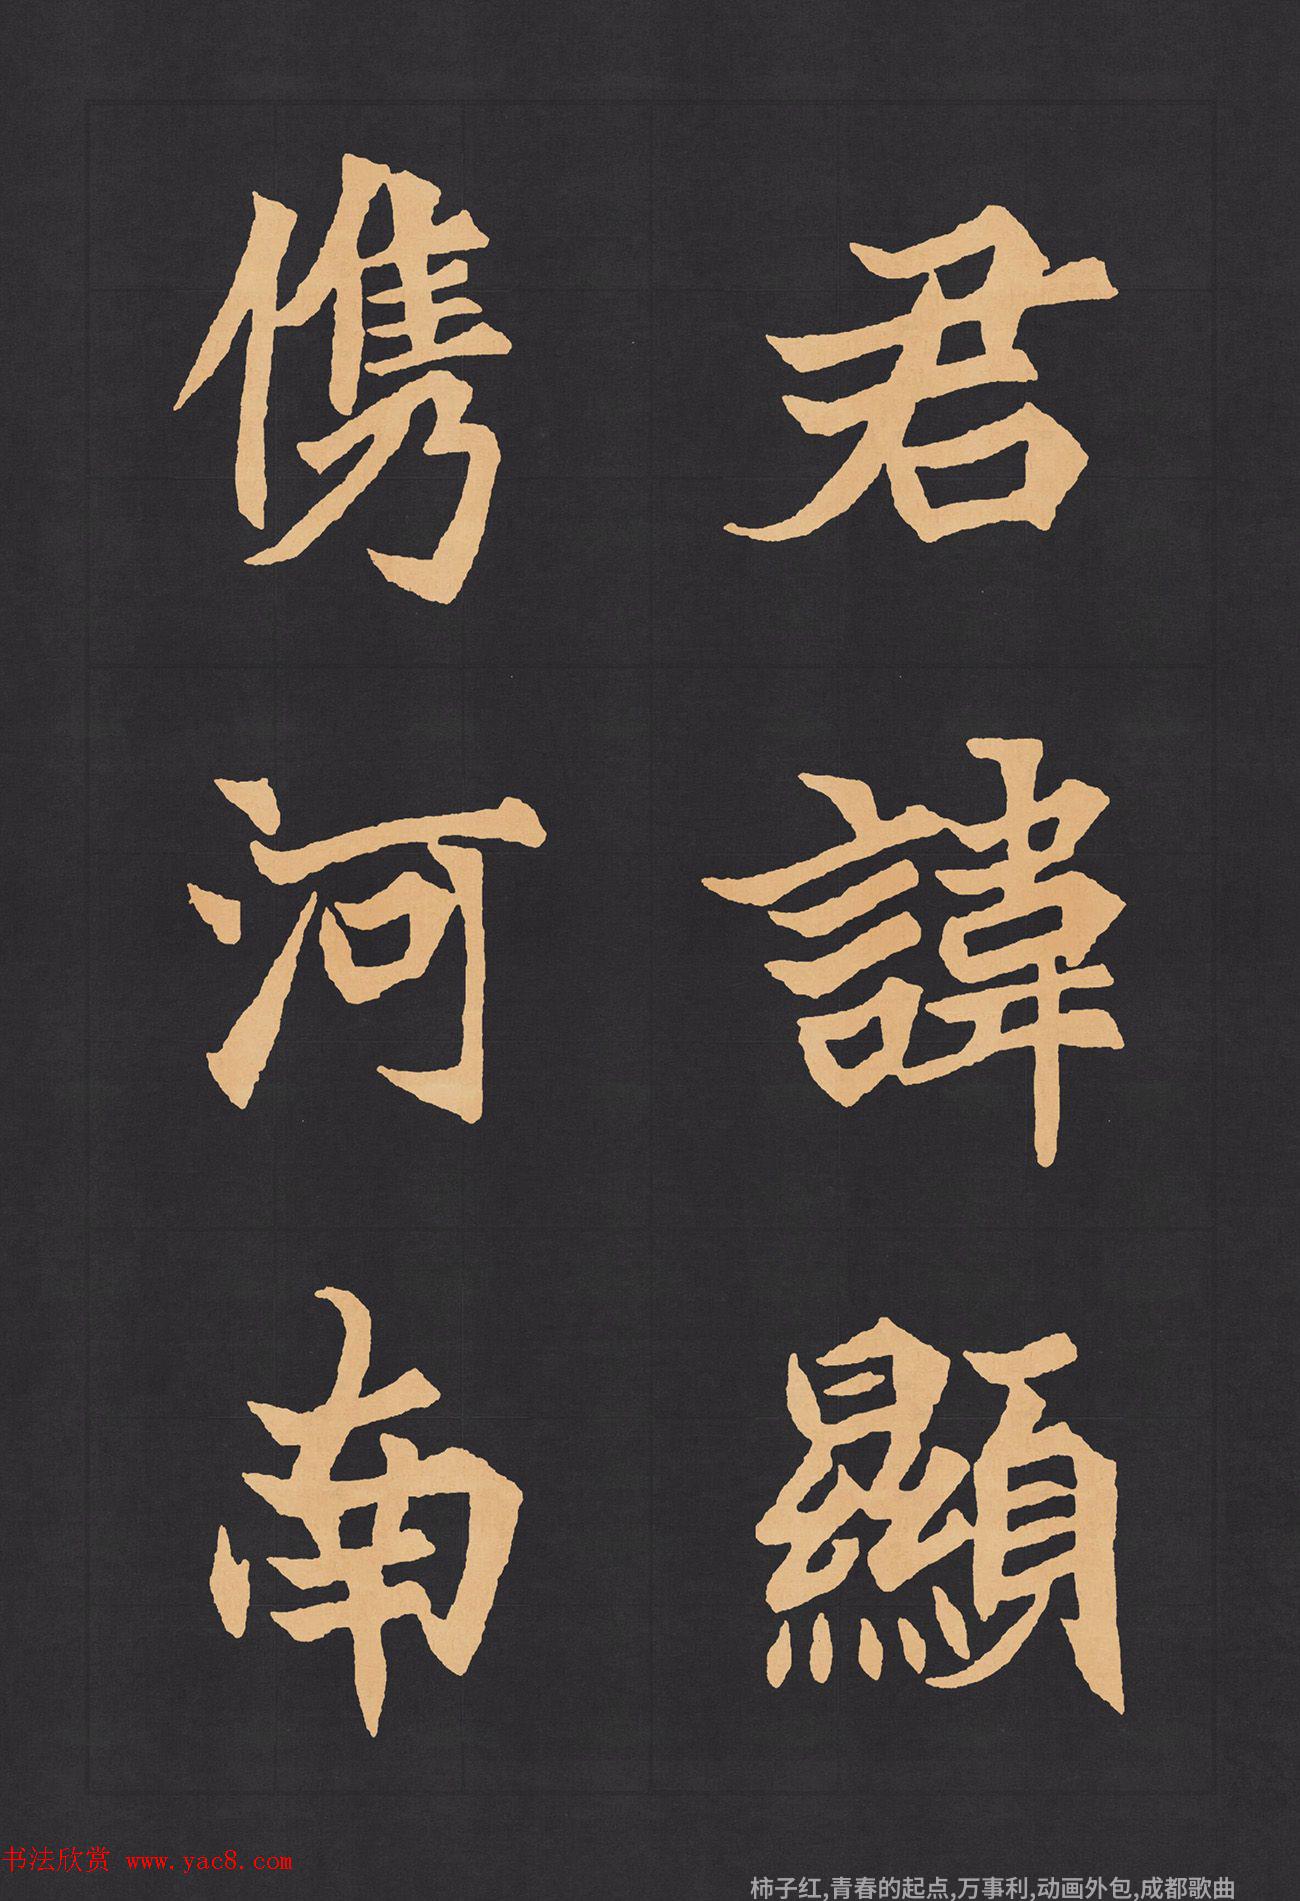 君諱顯
儁河南
书法欣赏 www.yac8.com
柿子红,青春的起点,万事利,动画外包,成都歌曲